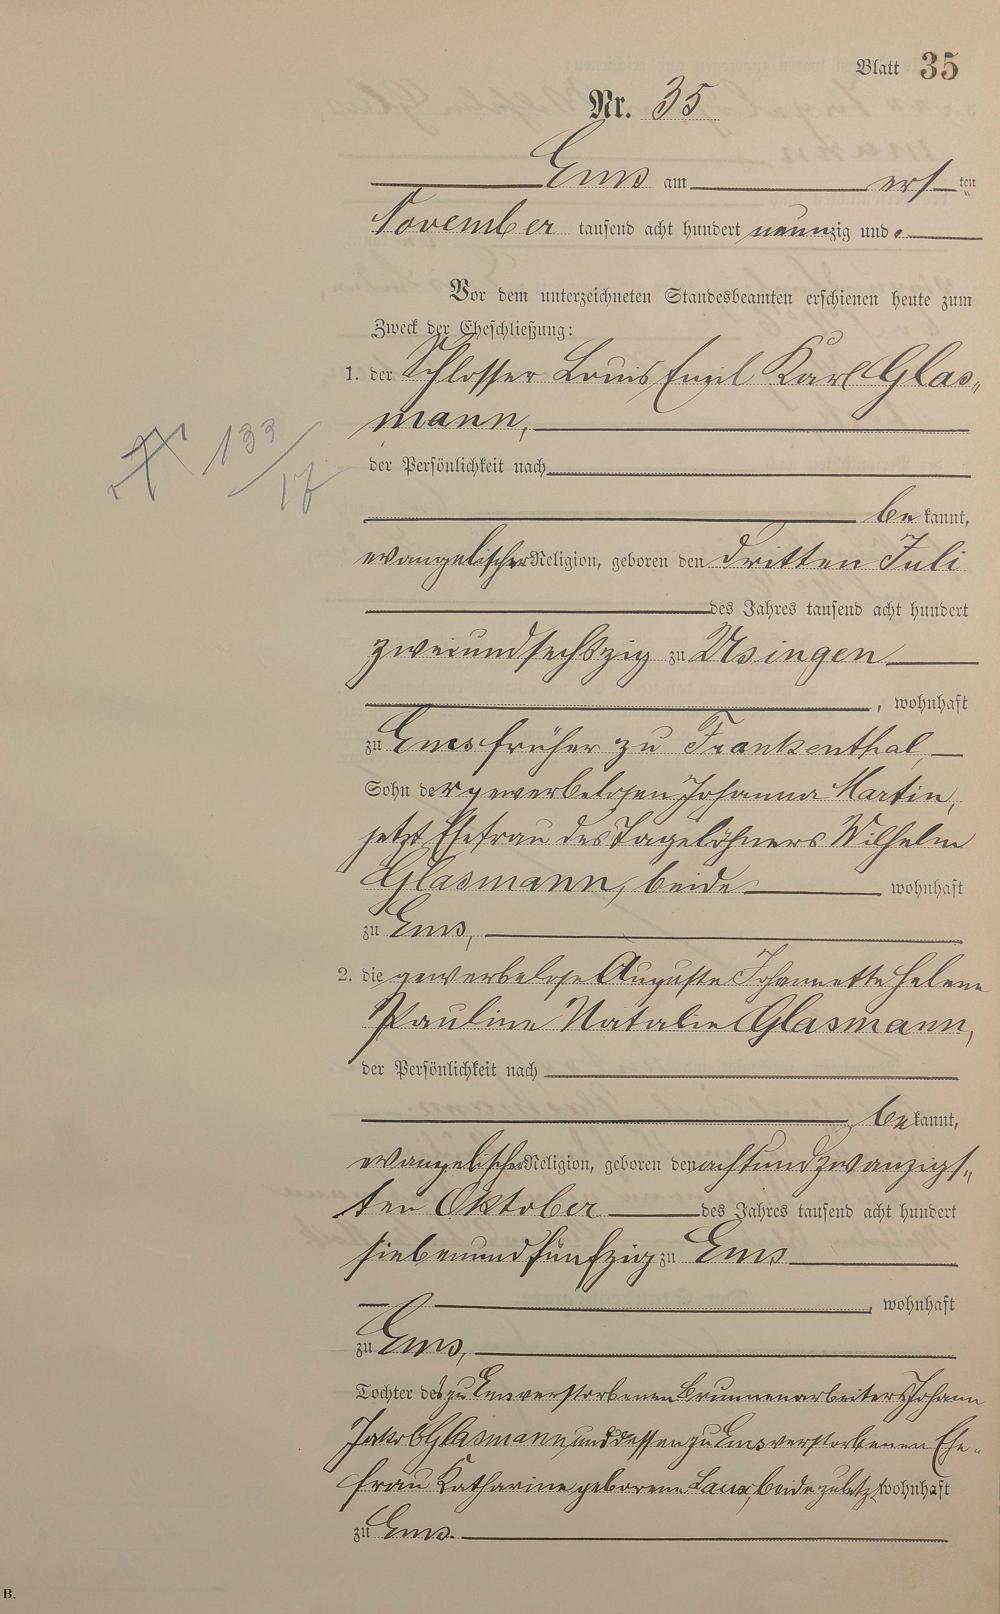 Blatt 35
Nr. 35
Ems am ersten
November tausend acht hundert neunzig und
Vor dem unterzeichneten Standesbeamten erschienen heute zum
Zweck der Eheschließung:
1. der Schlosser Louis Emil Karl Glas-
mann,
133
17
der Persönlichkeit nach
bekannt,
evangelischer Religion, geboren den dritten Juli
des Jahres tausend acht hundert
zweiundsechszig zu Usingen
, wohnhaft
zu Ems früher zu Frankenthal,
Sohn der gewerbelosen Johanna Martin,
jetzt Ehefrau des Tagelöhners Wilhelm
Glasmann, beide wohnhaft
zu Ems,
2. die gewerbelose Auguste Johannette Helene
Pauline Natalie Glasmann,
der Persönlichkeit nach
bekannt,
evangelischer Religion, geboren den achtundzwanzigs-
ten Oktober des Jahres tausend acht hundert
siebenundfünfzig zu Ems
, wohnhaft
zu Ems,
Tochter des zu Ems verstorbenen Brunnenarbeiters Johann
Jakob Glasmann, und dessen zu Ems verstorbenen Ehe-
frau Katharine geborene Laux, beide zuletzt wohnhaft
zu Ems.
B.